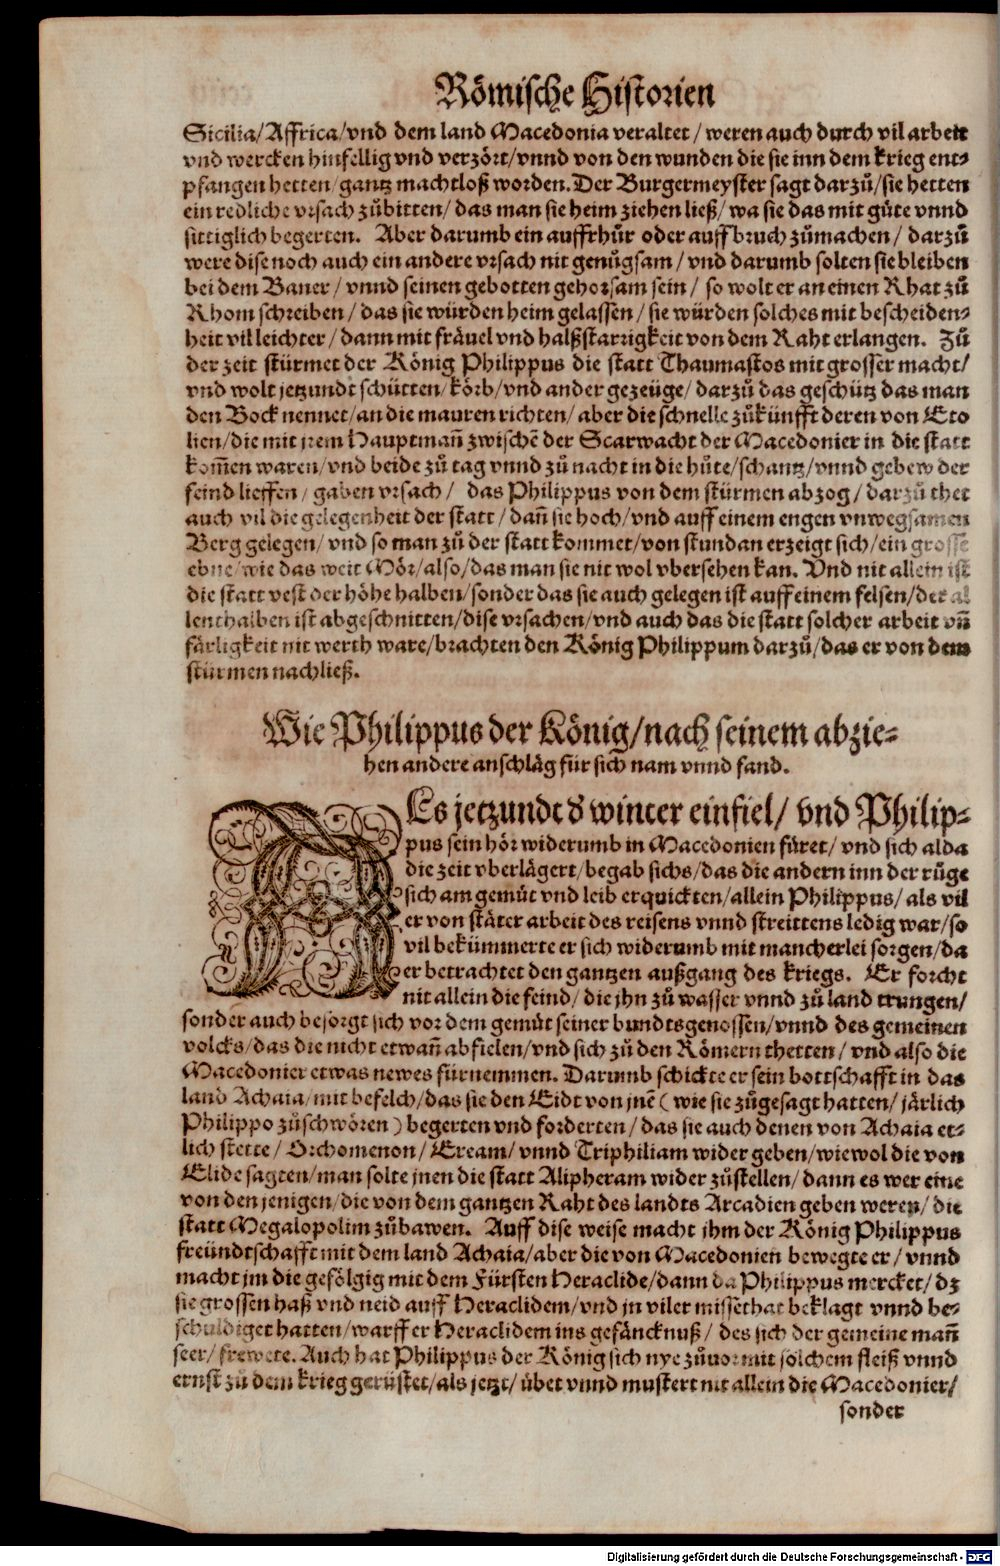 Römische Historien
Sicilia/Affrica/vnd dem land Macedonia veraltet/weren auch durch vil arbeit
vnd wercken hinfellig vnd verzört/vnnd von den wunden die sie inn dem krieg ent-
pfangen hetten/gantz machtloß worden. Der Burgermeyster sagt darzů/sie hetten
ein redliche vrsach zůbitten/das man sie heim ziehen ließ/wa sie das mit güte vnnd
sittiglich begerten. Aber darumb ein auffrhůr oder auffbruch zůmachen/darzů
were dise noch auch ein andere vrsach nit genůgsam/vnd darumb solten sie bleiben
bei dem Baner/vnnd seinen gebotten gehorsam sein/so wolt er an einen Rhat zů
Rhom schreiben/das sie würden heim gelassen/sie würden solches mit bescheiden-
heit vil leichter/dann mit fräuel vnd halßstarrigkeit von dem Raht erlangen. Zů
der zeit stürmet der König Philippus die statt Thaumastos mit grosser macht/
vnd wolt jetzundt schütten/körb/vnd ander gezeüge/darzů das geschütz das man
den Bock nennet/an die mauren richten/aber die schnelle zůkünfft deren von Eto
lien/die mit jrem Hauptmañ zwischē der Scarwacht der Macedonier in die statt
kom̃en waren/vnd beide zů tag vnnd zů nacht in die hůte/schantz/vnnd gebew der
feind lieffen/gaben vrsach/das Philippus von dem stürmen abzog/darzů thet
auch vil die gelegenheit der statt/dañ sie hoch/vnd auff einem engen vnwegsamen
Berg gelegen/vnd so man zů der statt kommet/von stundan erzeigt sich/ein grosse
ebne/wie das weit Mör/also/das man sie nit wol vbersehen kan. Vnd nit allein ist
die statt vest der höhe halben/sonder das sie auch gelegen ist auff einem felsen/der al
lenthalben ist abgeschnitten/dise vrsachen/vnd auch das die statt solcher arbeit vñ
färligkeit nit werth ware/brachten den König Philippum darzů/das er von dem
stürmen nachließ.
Wie Philippus der König/nach seinem abzie-
hen andere anschläg für sich nam vnnd fand.
ALs jetzundt d winter einfiel/vnd Philip-
pus sein hör widerumb in Macedonien füret/vnd sich alda
die zeit vberlägert/begab sichs/das die andern inn der rüge
sich am gemüt vnd leib erquickten/allein Philippus/als vil
er von stäter arbeit des reisens vnnd streittens ledig war/so
vil bekümmerte er sich widerumb mit mancherlei sorgen/da
er betrachtet den gantzen außgang des kriegs. Er forcht
nit allein die feind/die jhn zů wasser vnnd zů land trungen/
sonder auch besorgt sich vor dem gemüt seiner bundtsgenossen/vnnd des gemeinen
volcks/das die nicht etwañ abfielen/vnd sich zů den Römern thetten/vnd also die
Macedonier etwas newes fürnemmen. Darumb schickte er sein bottschafft in das
land Achaia/mit befelch/das sie den Eidt von jnē (wie sie zůgesagt hatten/järlich
Philippo zůschwören) begerten vnd forderten/das sie auch denen von Achaia et-
lich stette/Orchomenon/Eream/vnnd Triphiliam wider geben/wiewol die von
Elide sagten/man solte jnen die statt Alipheram wider zůstellen/dann es wer eine
von den jenigen/die von dem gantzen Raht des landts Arcadien geben weren/die
statt Megalopolim zůbawen. Auff dise weise macht ihm der König Philippus
freündtschafft mit dem land Achaia/aber die von Macedonien bewegte er/vnnd
macht jm die gefölgig mit dem Fürsten Heraclide/dann da Philippus mercket/dz
sie grossen haß vnd neid auff Heraclidem/vnd jn viler missethat beklagt vnnd be-
schuldiget hatten/warff er Heraclidem ins gefäncknuß/des sich der gemeine mañ
seer/frewete. Auch hat Philippus der König sich nye zůuor mit solchem fleiß vnnd
ernst zů dem krieg gerüstet/als jetzt/übet vnnd mustert nit allein die Macedonier/
sonder
Digitalisierung gefördert durch die Deutsche Forschungsgemeinschaft - DFG